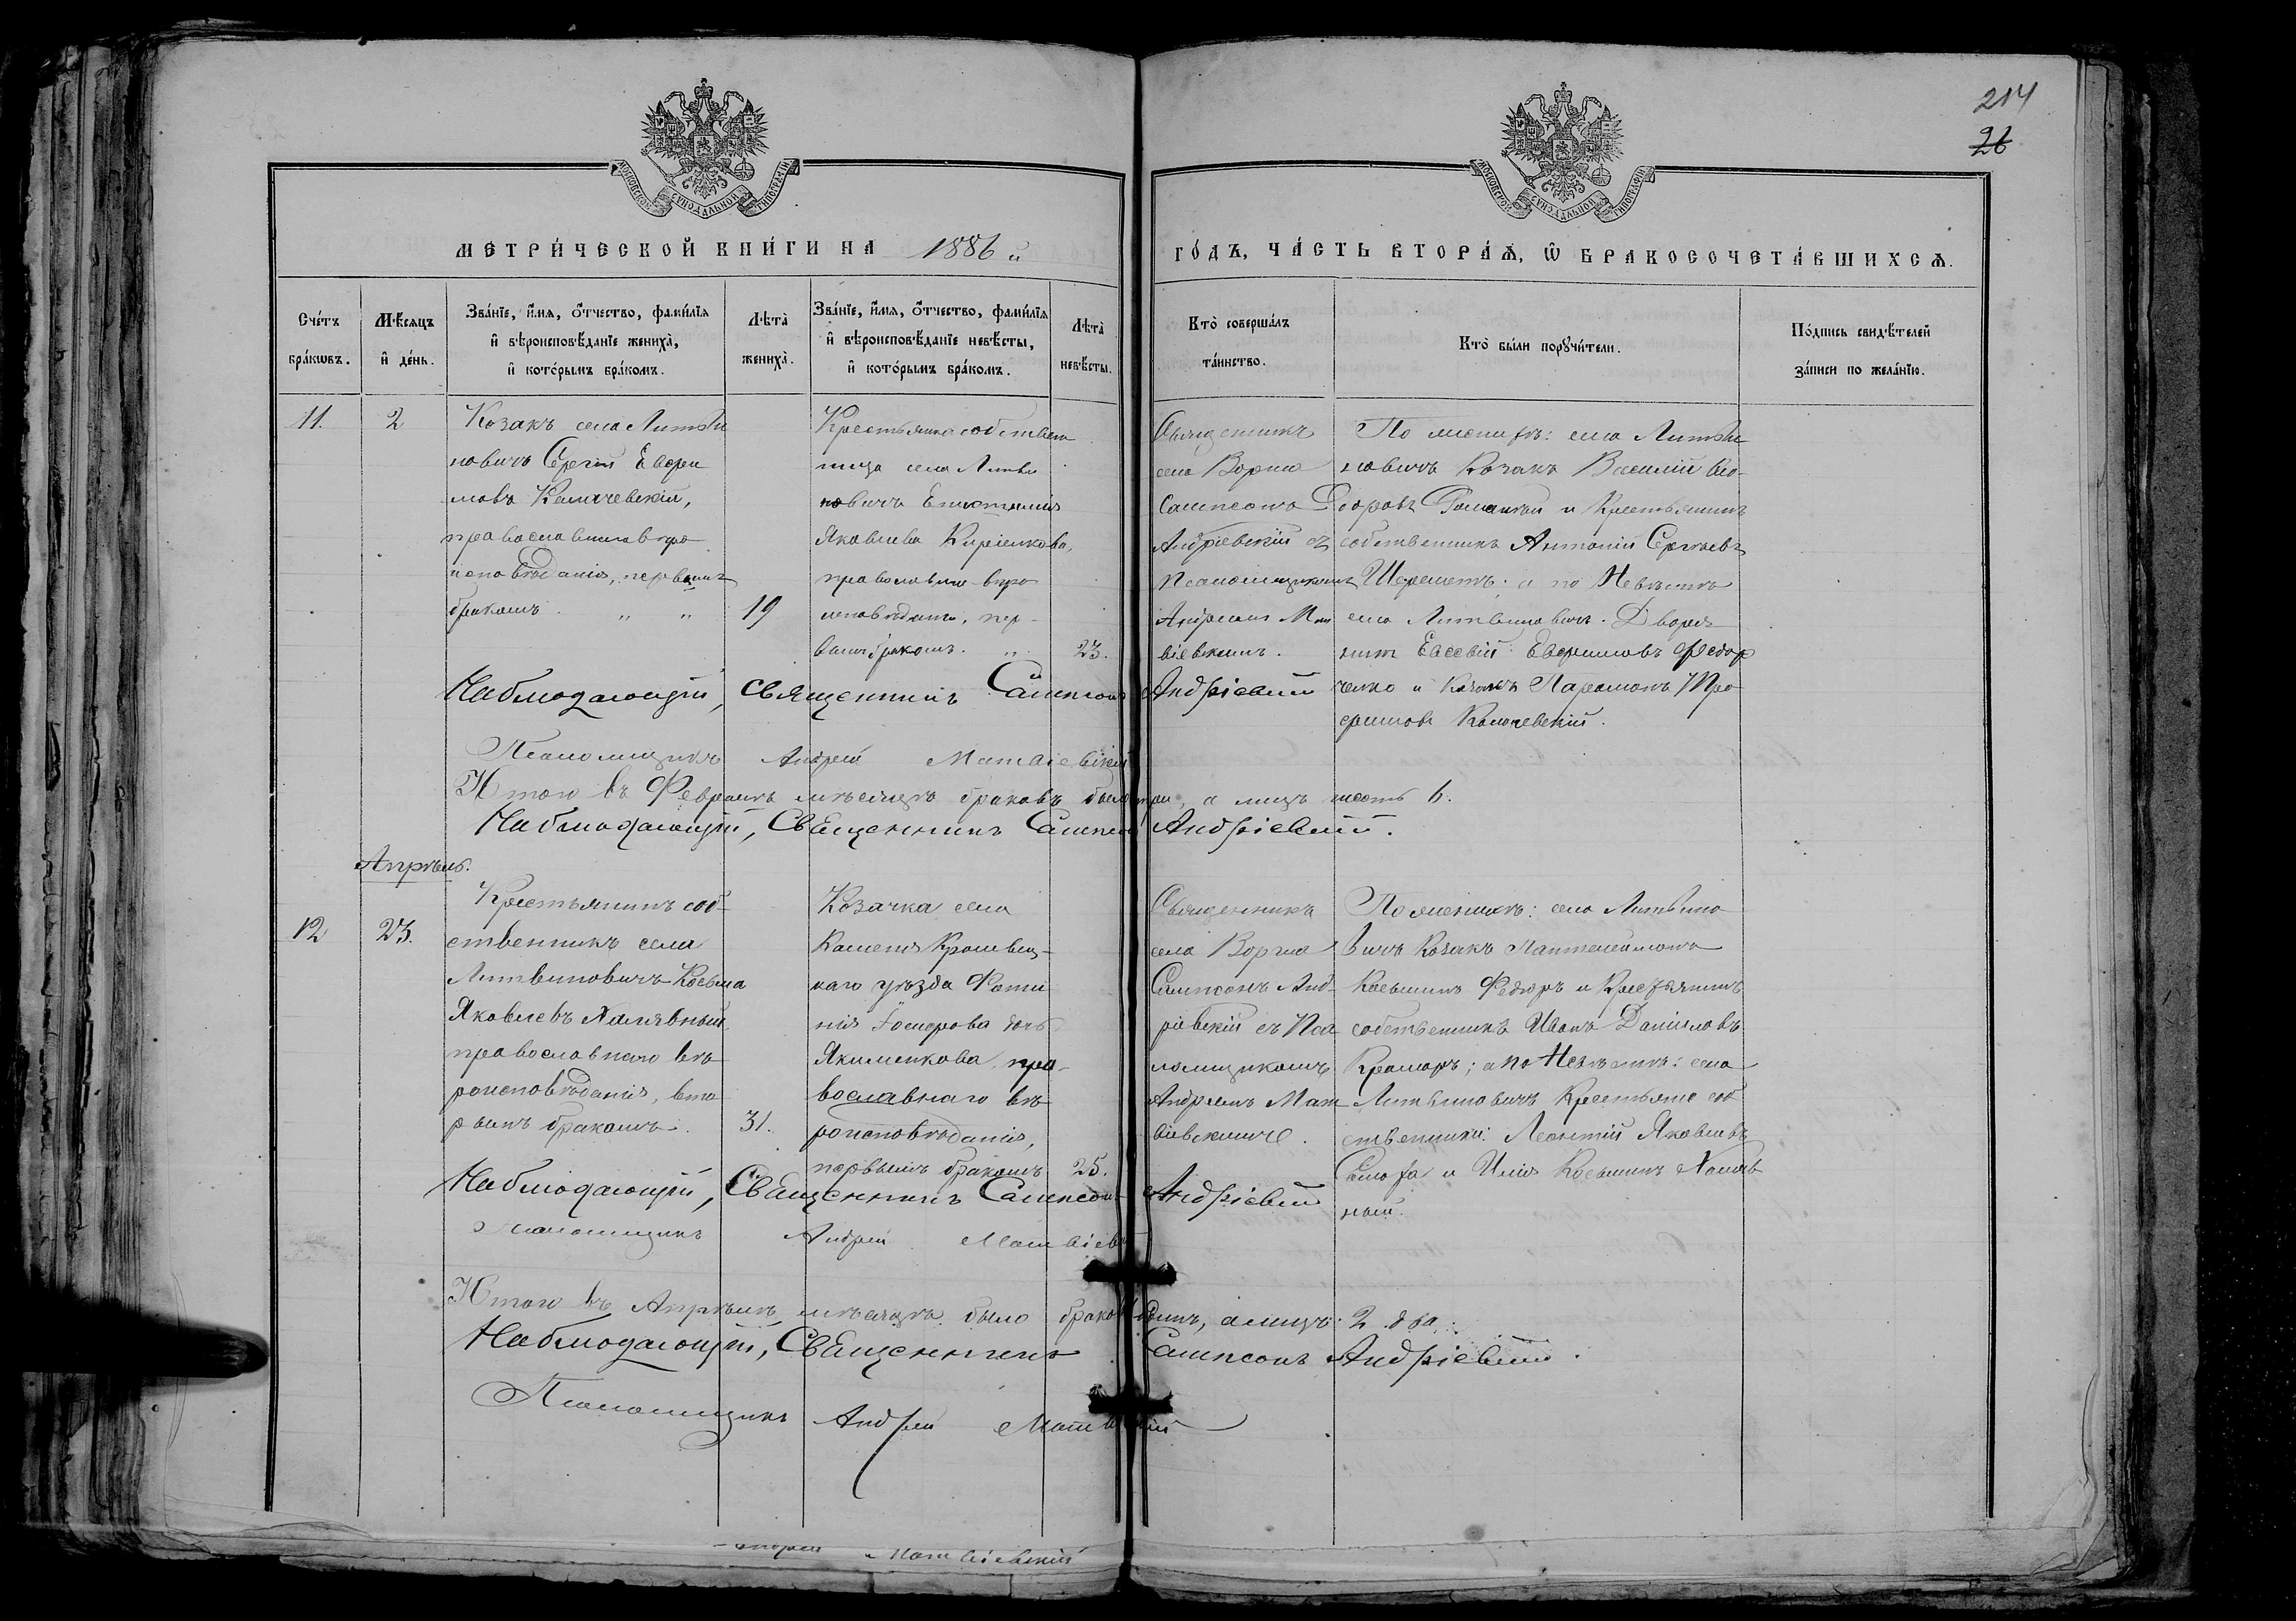 214
26
МОСКОВСКОЙ СѴНОДАЛЬНОЙ ТИПОГРАФІИ
МОСКОВСКОЙ СѴНОДАЛЬНОЙ ТИПОГРАФІИ
МЕТРИ́ЧЕСКОЙ КНИ́ГИ НА 1886 й
ГО́ДЪ, ЧА́СТЬ ВТОРА́Ѧ, Ѡ БРАКОСОЧЕТА́ВШИХСѦ.
Сче́тъ бра́кωвъ.
Мѣ́сяцъ и҆ де́нь.
Зва́нїе, и҆́мѧ, ѻ҆́тчество, фами́лїѧ
и҆ вѣроисповѣ́данїе жениха̀,
и҆ кото́рымъ бра́комъ.
Лѣта̀ жениха̀.
Зва́нїе, и҆́мѧ, ѻ҆́тчество, фами́лїѧ
и҆ вѣроисповѣ́данїе невѣ́сты,
и҆ кото́рымъ бра́комъ.
Лѣта̀ невѣ́сты.
Кто̀ соверша́лъ
та́инство.
Кто̀ бы́ли порꙋчи́тели.
По́дпись свидѣ́телей
за́писи по жела́нїю.
11.
2
Козакъ села Литви
новичъ Сергій Ефре
мовъ Калачевскій,
православнаго вѣро
исповѣданія, первымъ
бракомъ. " "
19
Крестьянка собствен
ница села Литви
новичъ Епистимія
Яковлева Киріенкова,
православно-вѣро
исповѣданія, пер-
вымъ бракомъ. "
23.
Священникъ
села Воргла
Сампсонъ
Андріевскій съ
Псаломщикомъ
Андреемъ Мат
віевскимъ.
По женихѣ: села Литви
новичъ Козакъ Василій Ѳео-
доровъ и Крестьянинъ
собственникъ Антоній Сергѣевъ
Шереметъ; а по Невѣстѣ
села Литвиновичъ. Дворя
нинъ Евсевій Ефремовъ Федор
ченко и Козакъ Парамонъ Тро
фимовъ Калачевскій.
Наблюдающій, Священникъ Сампсонъ Андріевскій
Псаломщикъ Андрей Матвіевскій
Итого въ Февралѣ мѣсяцѣ браковъ было три, а лицъ шесть 6.
Наблюдающій, Священникъ Сампсонъ Андріевскій.
Апрѣль.
12
23.
Крестьянинъ соб-
ственникъ села
Литвиновичъ Косьма
Яковлевъ Халявный
православнаго вѣ-
роисповѣданія, вто-
рымъ бракомъ.
31.
Козачка села
Каменя Кролевец-
каго уѣзда Фоти
нія дочь
Якименкова, пра-
вославнаго вѣ-
роисповѣданія,
первымъ бракомъ
25.
Священникъ
села Воргла
Сампсонъ Анд-
ріевскій съ Пса
ломщикомъ
Андреемъ Мат
віевскимъ.
По женихѣ: села Литвино
вичъ Козакъ Пантелеимонъ
Косьминъ Федюръ и Крестьянинъ
собственникъ Иванъ Даниловъ
Крамаръ; а по Невѣстѣ: села
Литвиновичъ Крестьяне соб
ственники: Леонтій Яковлевъ
и Илія Косьминъ Халяв
ный.
Наблюдающій, Священникъ Сампсонъ Андріевскій
Псаломщикъ Андрей Матвіевскій
Итого въ Апрѣлѣ мѣсяцѣ было браковъ одинъ, а лицъ 2 два.
Наблюдающій, Священникъ Сампсонъ Андріевскій.
Псаломщикъ Андрей Матвіевскій
Андрей Матвіевскій